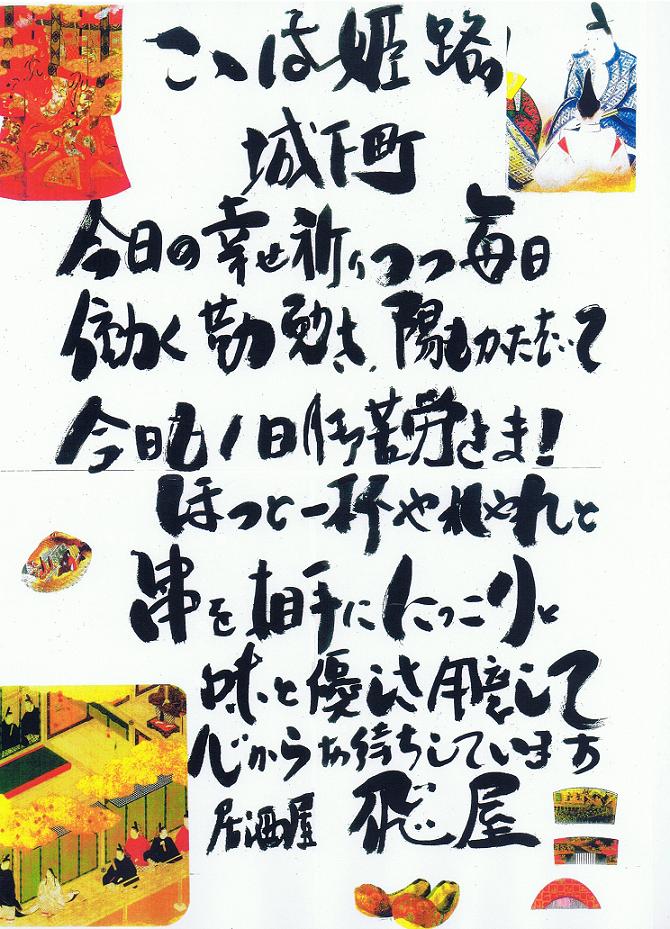 ここは姫路の
城下町
今日の幸せ祈りつつ毎日
働く勤勉さ、陽もかたむいて
今日も1日御苦労さま!
ほっと一杯やれやれと
串を相手ににっこりと
味と優しさ用意して
心からお待ちしています
居酒屋 飛屋